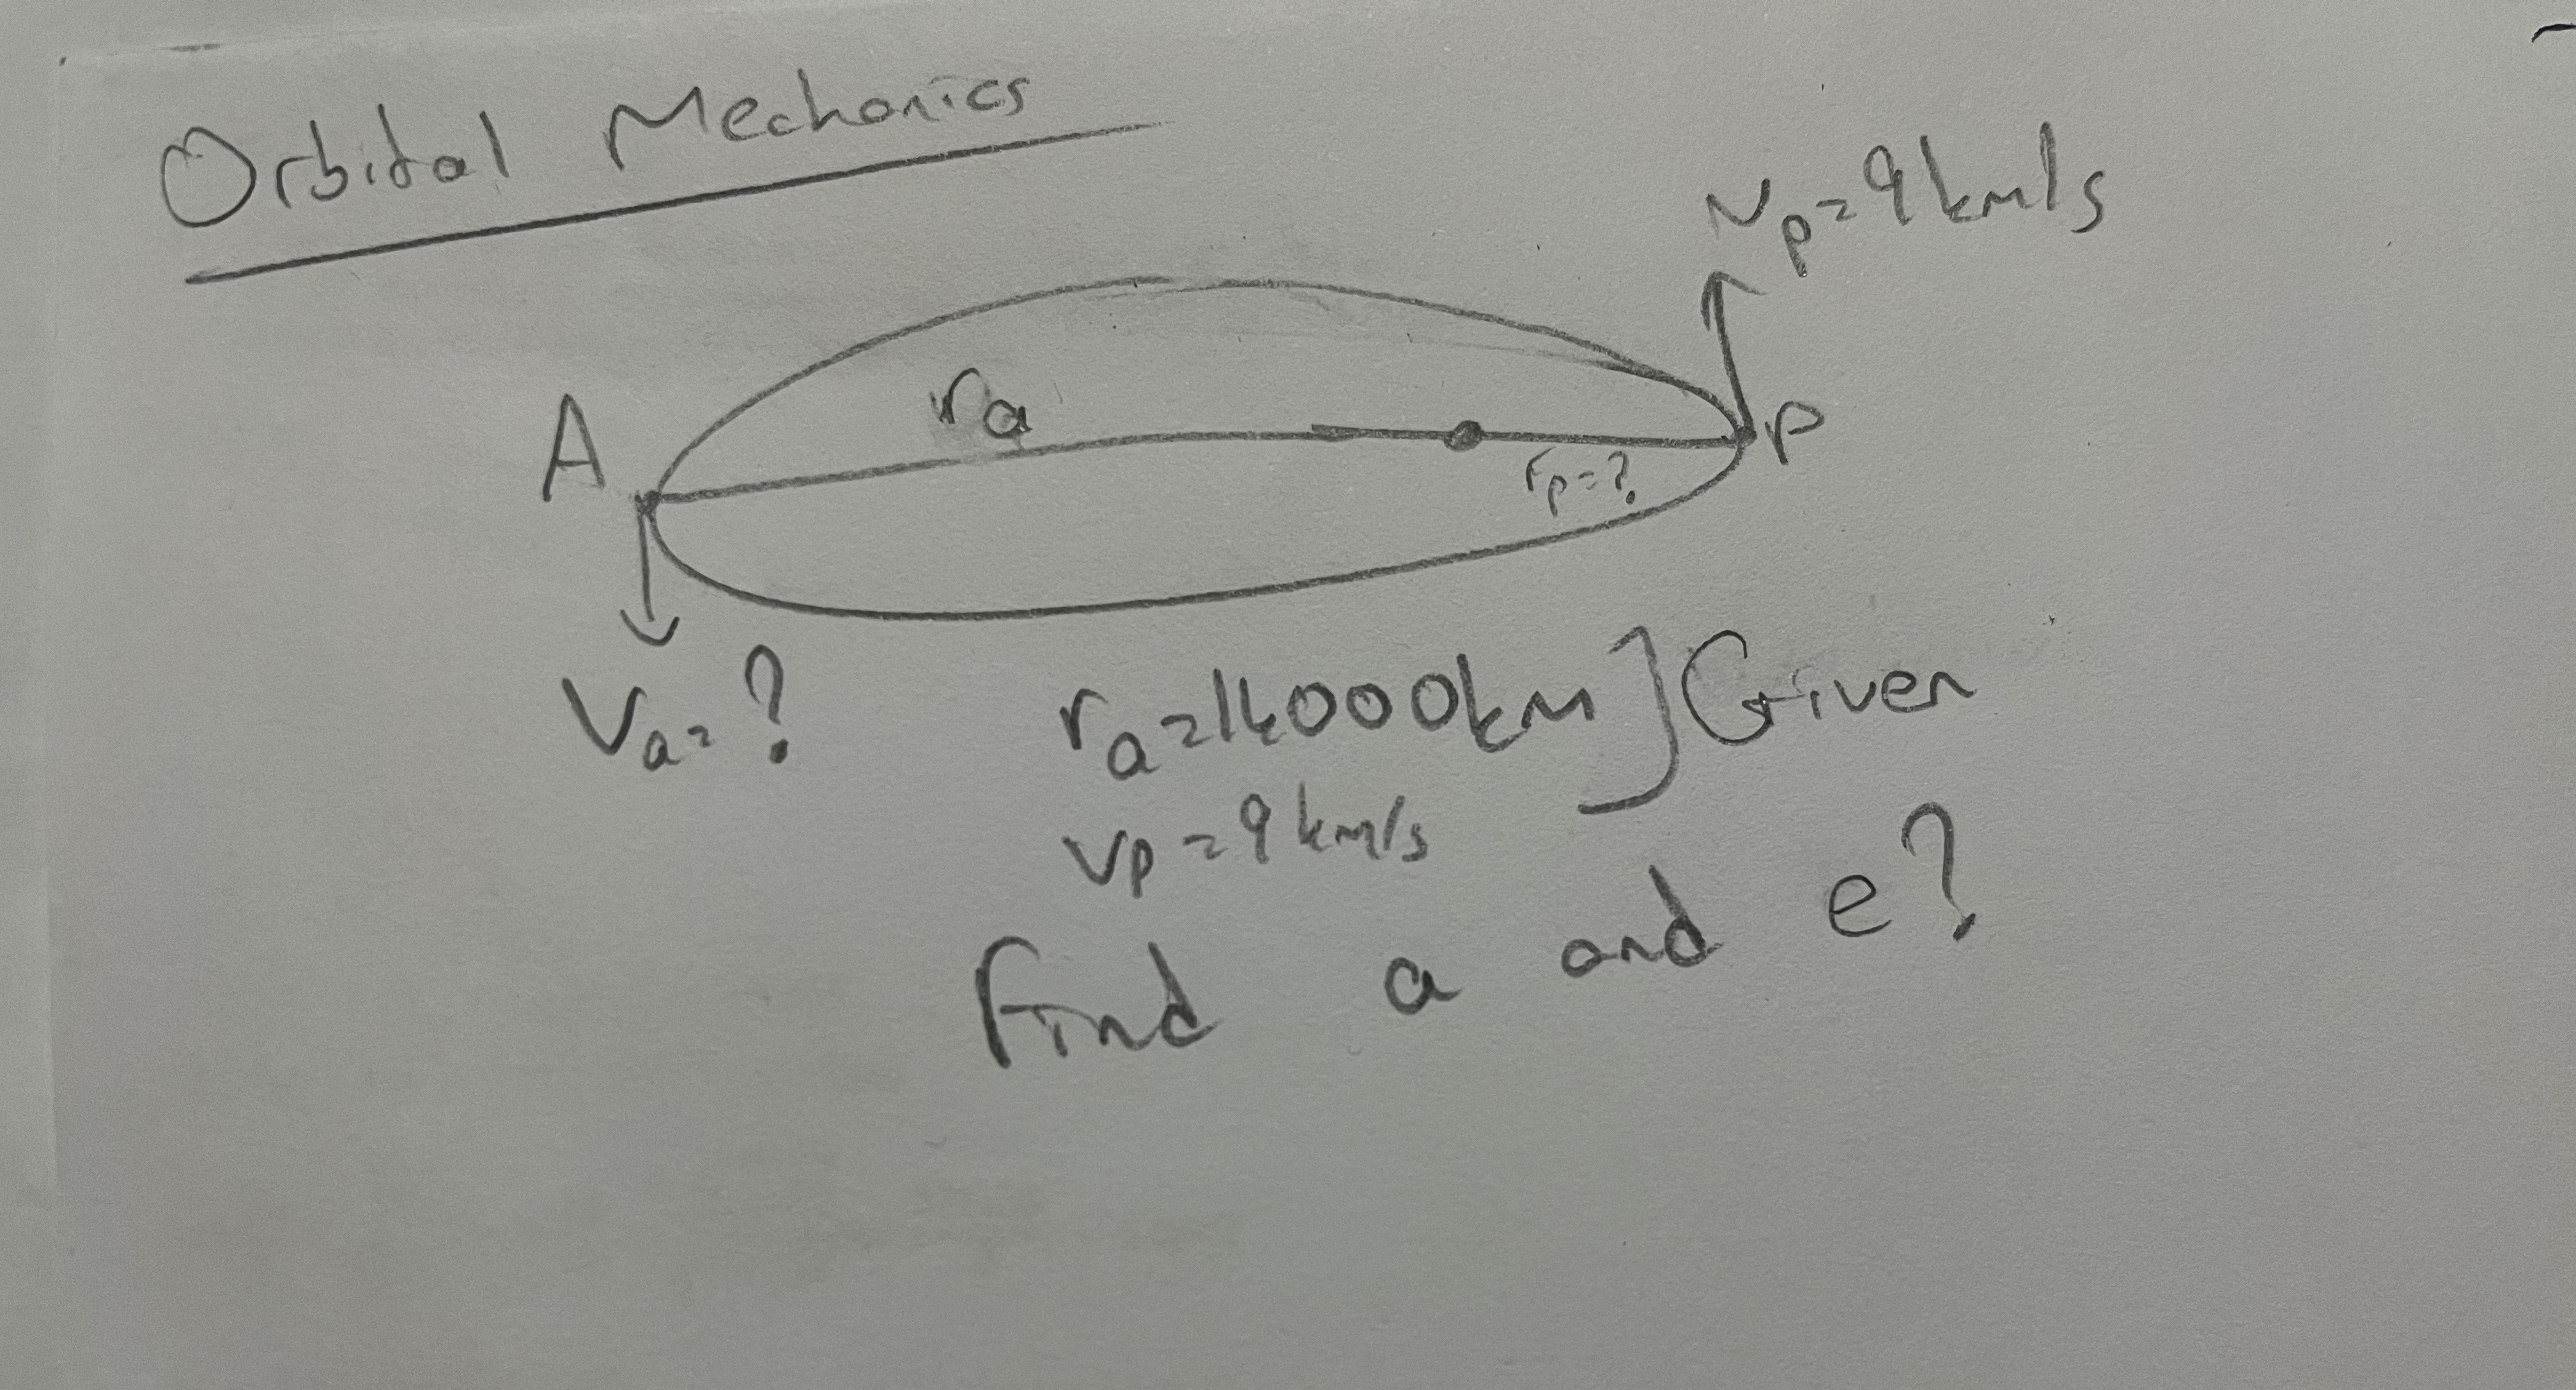 Orbital Mechanics
vp=9km/s
A
ra
P
rp=?
Va=?
ra=14000km ] Given
vp=9km/s
Find a and e?